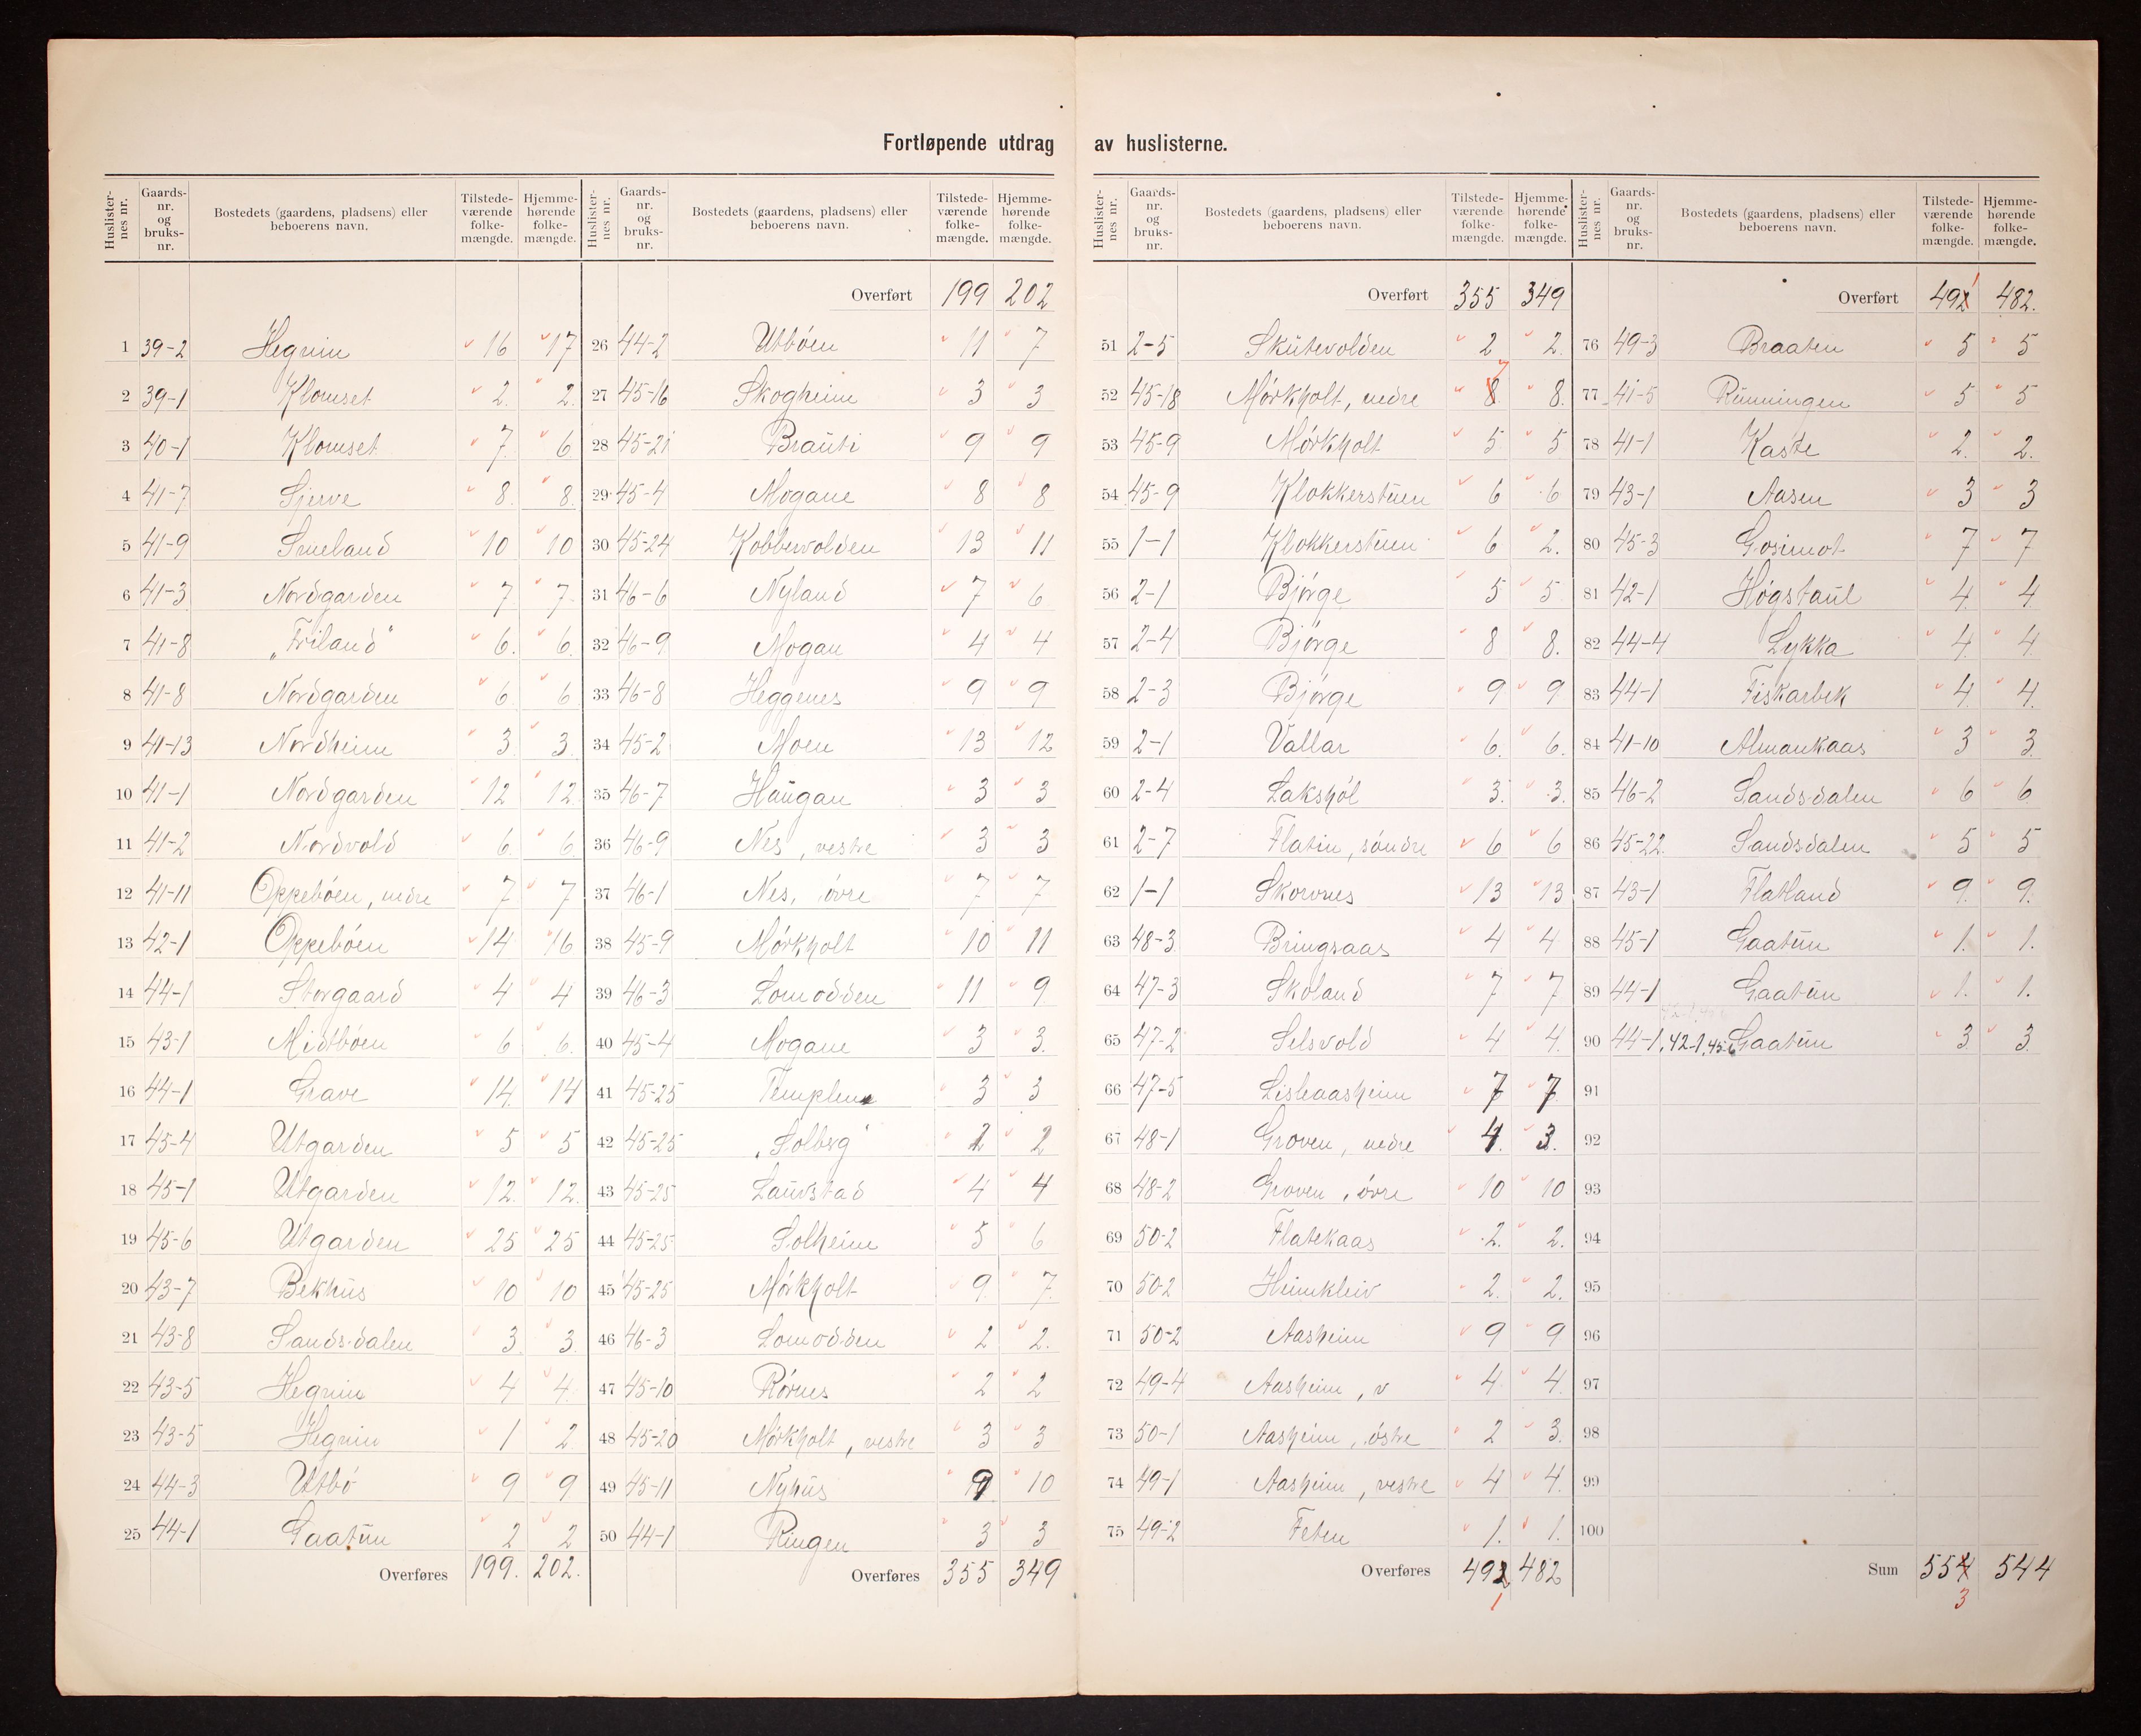 Fortløpende utdrag av huslisterne.
Huslisternes nr. Gaards-nr. og bruks-nr. Bostedets (gaardens, pladsens) eller beboerens navn. Tilstedeværende folkemængde. Hjemmehørende folkemængde.
1 39-2 Hegnin 16 17
2 39-1 Klomset 2. 2.
3 40-1 Klomset 7. 6
4 41-7 Sjerve 8. 8.
5 41-9 Smeland 10 10
6 41-3 Nordgarden 7 7
7 41-8 „Friland" 6. 6.
8 41-8 Nordgarden 6 6
9 41-13 Nordheim 3. 3.
10 41-1 Nordgarden 12 12
11 41-2 Nordvold 6. 6
12 41-11 Oppebøen, nedre 7 7
13 42-1 Oppebøen 14 16
14 44-1 Storgaard 4 4
15 43-1 Midtbøen 6 6.
16 44-1 Grave 14. 14
17 45-4 Utgarden 5 5
18 45-1 Utgarden 12. 12.
19 45-6 Utgarden 25 25
20 43-7 Bekhus 10 10
21 43-8 Sandsdalen 3. 3.
22 43-5 Hegnin 4 4.
23 43-5 Hegnin 1 2
24 44-3 Utbø 9 9
25 44-1 Gaatun 2 2
Overføres 199. 202.
Huslisternes nr. Gaards-nr. og bruks-nr. Bostedets (gaardens, pladsens) eller beboerens navn. Tilstedeværende folkemængde. Hjemmehørende folkemængde.
Overført 199 202
26 44-2 Utbøen 11 7
27 45-16 Skogheim 3 3
28 45-21 Brauti 9 9
29 45-4 Mogane 8 8
30 45-24 Kobbervolden 13 11
31 46-6 Nyland 7 6
32 46-9 Mogan 4 4
33 46-8 Heggenes 9 9
34 45-2 Moen 13 12
35 46-7 Haugan 3 3
36 46-9 Nes, vestre 3 3
37 46-1 Nes, øvre 7 7
38 45-9 Mørkholt 10 11
39 46-3 Lomodden 11 9
40 45-4 Mogane 3 3.
41 45-25 Templen 3 3
42 45-25 „Solberg" 2 2
43 45-25 Laurstad 4 4
44 45-25 Solheim 5 6
45 45-25 Mørkholt 9. 7.
46 46-3 Lomodden 2 2.
47 45-10 Rørnes 2 2
48 45-20 Mørkholt, vestre 3 3
49 45-11 Nyhus 9 10
50 44-1 Ringen 3 3
Overføres 355 349
Huslisternes nr. Gaards-nr. og bruks-nr. Bostedets (gaardens, pladsens) eller beboerens navn. Tilstedeværende folkemængde. Hjemmehørende folkemængde.
Overført 355 349
51 2-5 Skutevolden 2 2.
52 45-18 Mørkholt, nedre 8 7 8.
53 45-9 Mørkholt 5 5
54 45-9 Klokkerstuen 6 6
55 1-1 Klokkerstuen 6 2.
56 2-1 Bjørge 5 5
57 2-4 Bjørge 8 8.
58 2-3 Bjørge 9 9
59 2-1 Vallar 6. 6.
60 2-4 Lakshøl 3. 3.
61 2-7 Flatin, søndre 6 6
62 1-1 Skorvnes 13 13
63 48-3 Bringsaas 4 4
64 47-3 Skoland 7 7
65 47-2 Selsvold 4 4.
66 47-5 Lisleaasheim 7 7
67 48-1 Groven, nedre 4. 3.
68 48-2 Groven, øvre 10 10
69 50-2 Flatekaas 2. 2.
70 50-2 Heimkleiv 2. 2.
71 50-2 Aasheim 9 9
72 49-4 Aasheim, v 4. 4.
73 50-1 Aasheim, østre 2 3.
74 49-1 Aasheim, vestre 4 4.
75 49-2 Feten 1. 1.
Overføres 492 482
1
Huslisternes nr. Gaards-nr. og bruks-nr. Bostedets (gaardens, pladsens) eller beboerens navn. Tilstedeværende folkemængde. Hjemmehørende folkemængde.
Overført 492 1 482.
76 49-3 Braaten 5 5
77 41-5 Rünningen 5 5
78 41-1 Kaste 2. 2.
79 43-1 Aasen 3 3
80 45-3 Gosimot 7 7
81 42-1 Høgstaul 4. 4.
82 44-4 Lykka 4. 4.
83 44-1 Fiskarbek 4. 4.
84 41-10 Almankaas 3 3.
85 46-2 Sandsdalen 6 6
86 45-22 Sandsdalen 5 5
87 43-1 Flatland 9. 9.
88 45-1 Gaatun 1. 1.
89 44-1 Gaatun 1. 1.
90 44-1, 42-1, 45-6 Gaatun 3. 3.
91
92
93
94
95
96
97
98
99
100
Sum 554 544
3